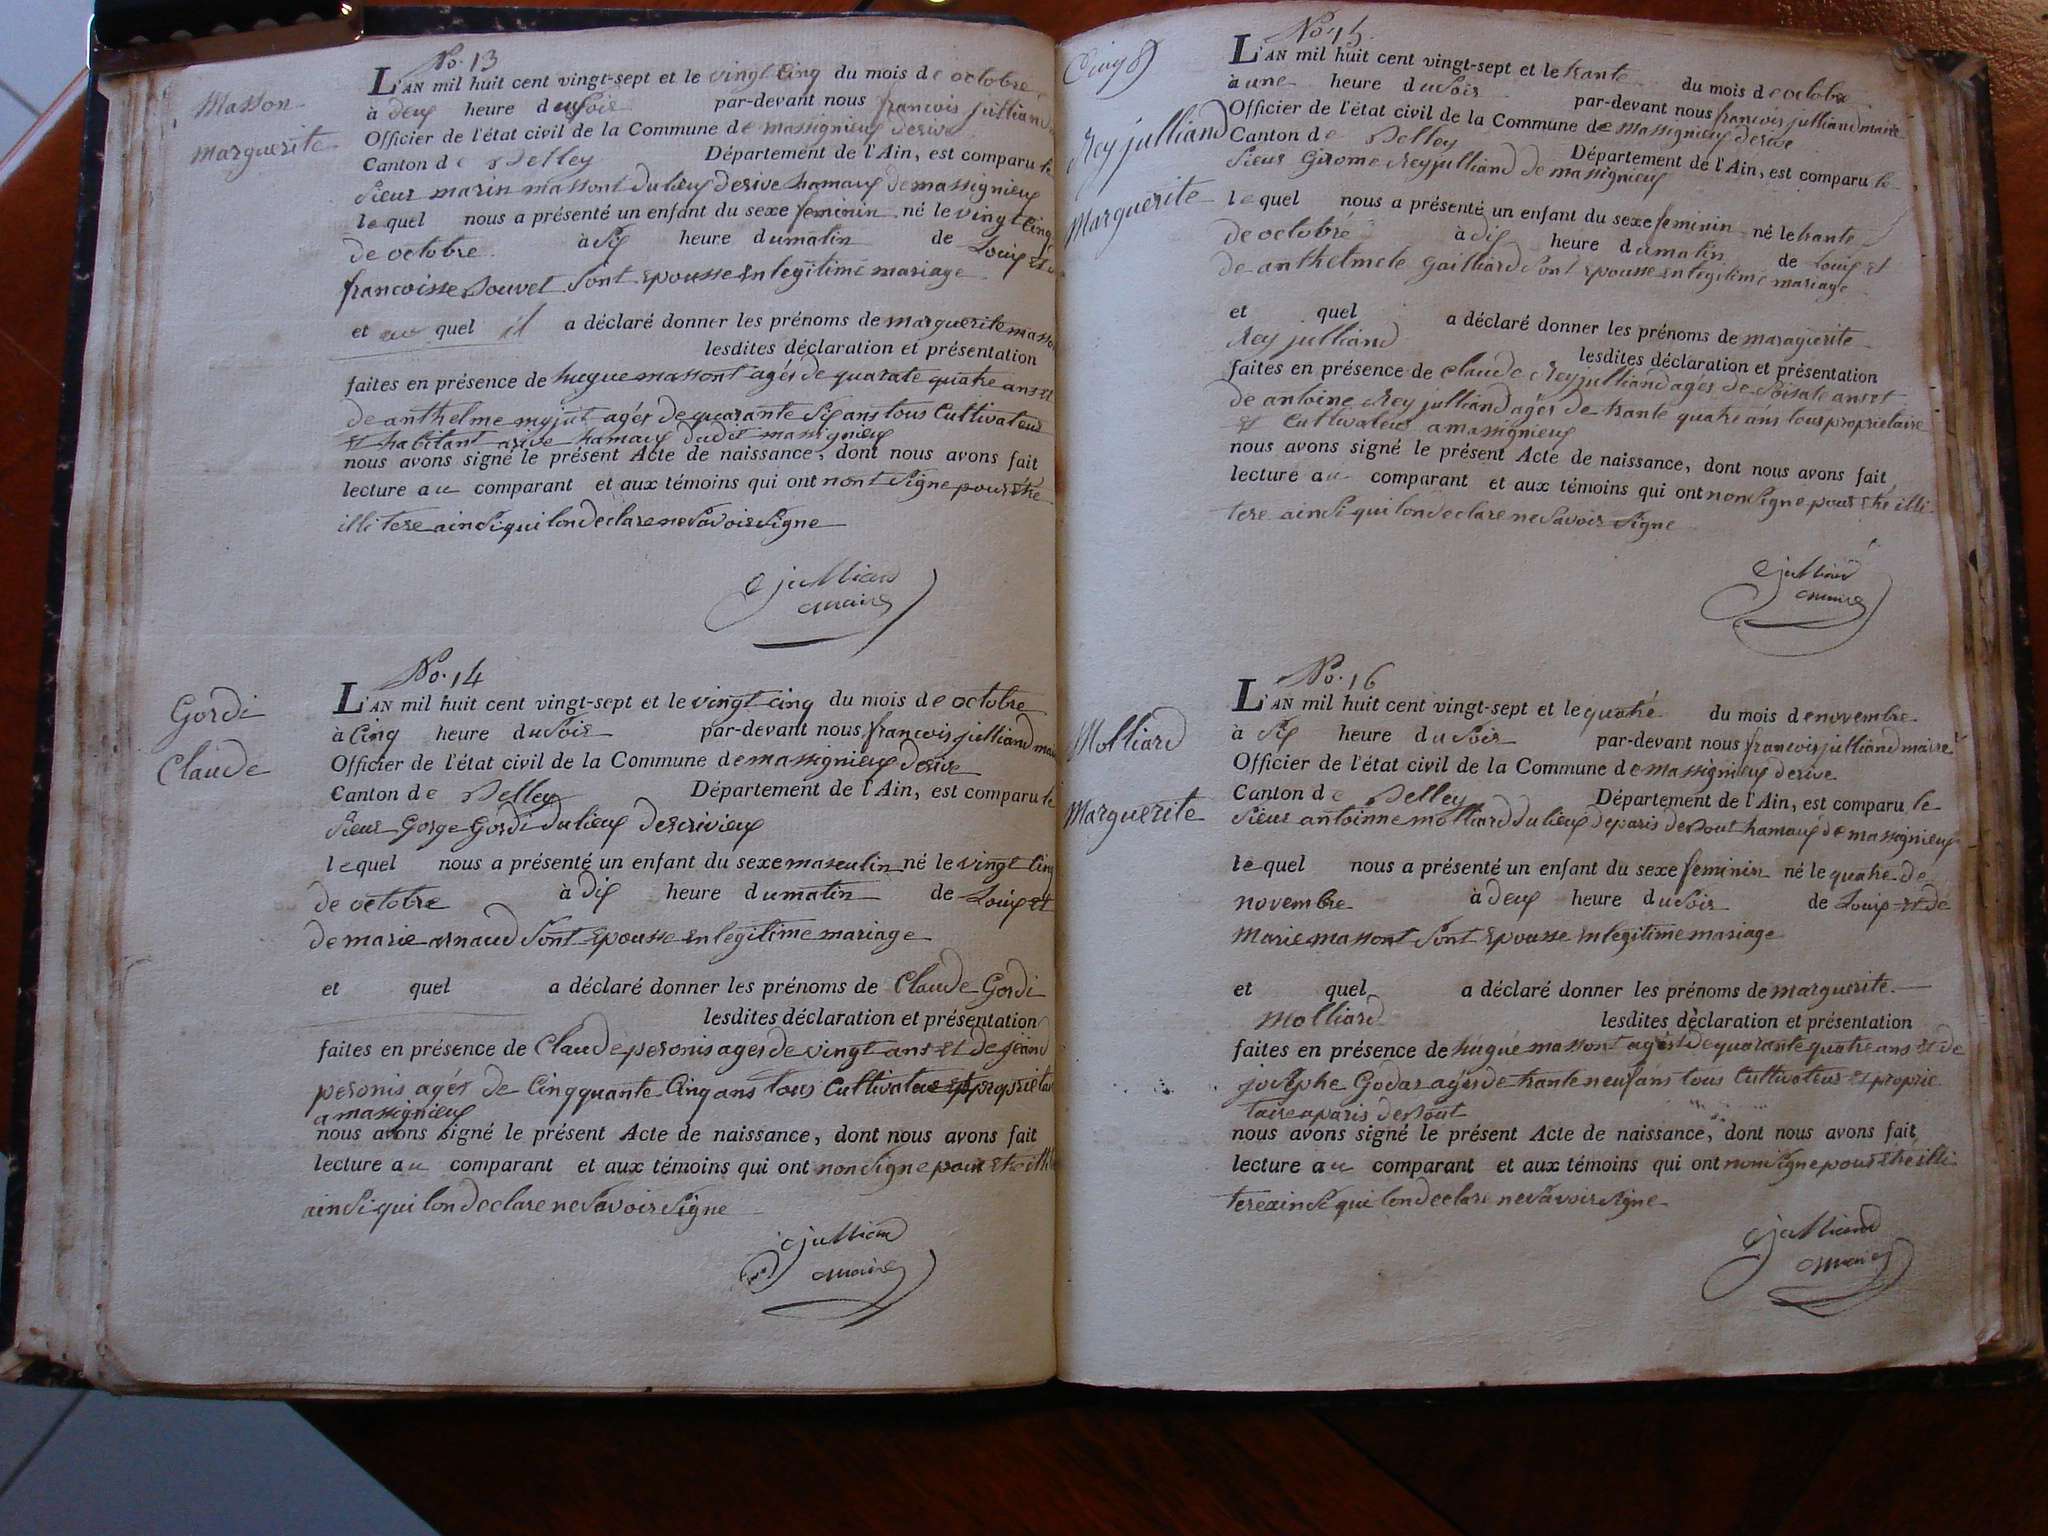 No. 13
Masson
Marguerite
L'AN mil huit cent vingt-sept et le vingt Cinq du mois de octobre
à deux heure du Soir par-devant nous francois julliand
Officier de l'état civil de la Commune de massignieux derive
Canton de Belley Département de l'Ain, est comparu le
Sieur marin massont du lieux derive hamaux de massignieux
le quel nous a présenté un enfant du sexe feminin né le vingt Cinq
de octobre à Six heure du matin de Louis et
francoisse Bouvet Sont Epousse En legitime mariage
et au quel il a déclaré donner les prénoms de marguerite masson
lesdites déclaration et présentation
faites en présence de hugue massont agés de quarate quatre ans Et
de anthelme myjut agés de quarante Six ans tous Cultivateur
Et habitant arive hamaux dudit massignieux
nous avons signé le présent Acte de naissance, dont nous avons fait
lecture au comparant et aux témoins qui ont nont Signe pour Etre
illitere ain Si qui lon declare ne Savoir Signe
julliand
maire
No. 14
Gordi
Claude
L'AN mil huit cent vingt-sept et le vingt cinq du mois de octobre
à Cinq heure du Soir par-devant nous francois julliand mai
Officier de l'état civil de la Commune de massignieux derive
Canton de Belley Département de l'Ain, est comparu le
Sieur Gorge Gordi du lieux descrivieux
le quel nous a présenté un enfant du sexe masculin né le vingt Cinq
de octobre à dix heure du matin de Louis Et
de marie arnaud Sont Epousse En legitime mariage
et quel a déclaré donner les prénoms de Claude Gordi
lesdites déclaration et présentation
faites en présence de Claude peronis ages de vingt ans Et de jean
peronis agés de Cinqquante Cinq ans tous Cultivateur Et proprietai
a massignieux
nous avons signé le présent Acte de naissance, dont nous avons fait
lecture au comparant et aux témoins qui ont non Signe pour Etre illite
ain Si qui lon declare ne Savoir Signe
julliand
maire
No. 15.
Rey julliand
Marguerite
L'AN mil huit cent vingt-sept et le trante du mois de octobre
à une heure du Soir par-devant nous francois julliand maire
Officier de l'état civil de la Commune de massignieux derive
Canton de Belley Département de l'Ain, est comparu le
Sieur Girome Rey julliand de massignieux
le quel nous a présenté un enfant du sexe feminin né le trante
de octobre à dix heure du matin de Louis Et
de anthelmete Gailliard Sont Epousse En legitime mariage
et quel a déclaré donner les prénoms de maraguerite
Rey julliand lesdites déclaration et présentation
faites en présence de Claude Rey julliand ages de Soisate ans et
de antoine Rey julliand agés de trante quatre ans tous proprietaire
Et Cultivateur a massignieux
nous avons signé le présent Acte de naissance, dont nous avons fait
lecture au comparant et aux témoins qui ont non Signe pour Etre illi
tere ain Si qui lon declare ne Savoir Signe
julliand
maire
No. 16
Molliard
Marguerite
L'AN mil huit cent vingt-sept et le quatre du mois de novembre
à Six heure du Soir par-devant nous francois julliand maire
Officier de l'état civil de la Commune de massignieux derive
Canton de Belley Département de l'Ain, est comparu le
Sieur antoinne molliard du lieux de paris de Bout hamaux de massignieux
le quel nous a présenté un enfant du sexe feminin né le quatre de
novembre à deux heure du Soir de Louis Et de
Marie massont Sont Epousse En legitime mariage
et quel a déclaré donner les prénoms de marguerite
Molliard lesdites déclaration et présentation
faites en présence de hugue massont agés de quarante quatre ans Et de
josephe Godar agés de trante neuf ans tous Cultivateur Et proprie
taire a paris de Bout
nous avons signé le présent Acte de naissance, dont nous avons fait
lecture au comparant et aux témoins qui ont non Signe pour Etre illi
tere ain Si qui lon declare ne Savoir Signe
julliand
maire